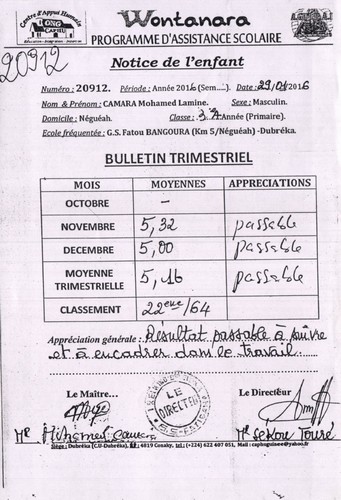 Centre d'Appui Humain
ONG
Wontanara
PROGRAMME D'ASSISTANCE SCOLAIRE
20912
Notice de l'enfant
Numéro : 20912. Période : Année 2016 (Sem.....). Date : 29/01/2016
Nom & Prénom : CAMARA Mohamed Lamine. Sexe : Masculin.
Domicile : Néguéah. Classe : Année (Primaire).
Ecole fréquentée : G.S. Fatou BANGOURA (Km 5/Néguéah) -Dubréka.
BULLETIN TRIMESTRIEL
MOIS MOYENNES APPRECIATIONS
OCTOBRE –
NOVEMBRE 5,32 passable
DECEMBRE 5,00 passable
MOYENNE TRIMESTRIELLE 5,16 passable
CLASSEMENT 22ème/64
Appréciation générale : Résultat passable à suivre
et à encadrer dans le travail.
Le Maître... Le Directeur
LE DIRECTEUR
Mr Mohamed Mr Sekou Touré
Siège : Dubréka (C.U-Dubréka), 4019 Conaky, tel: (+224) 622 407 051, Mail :